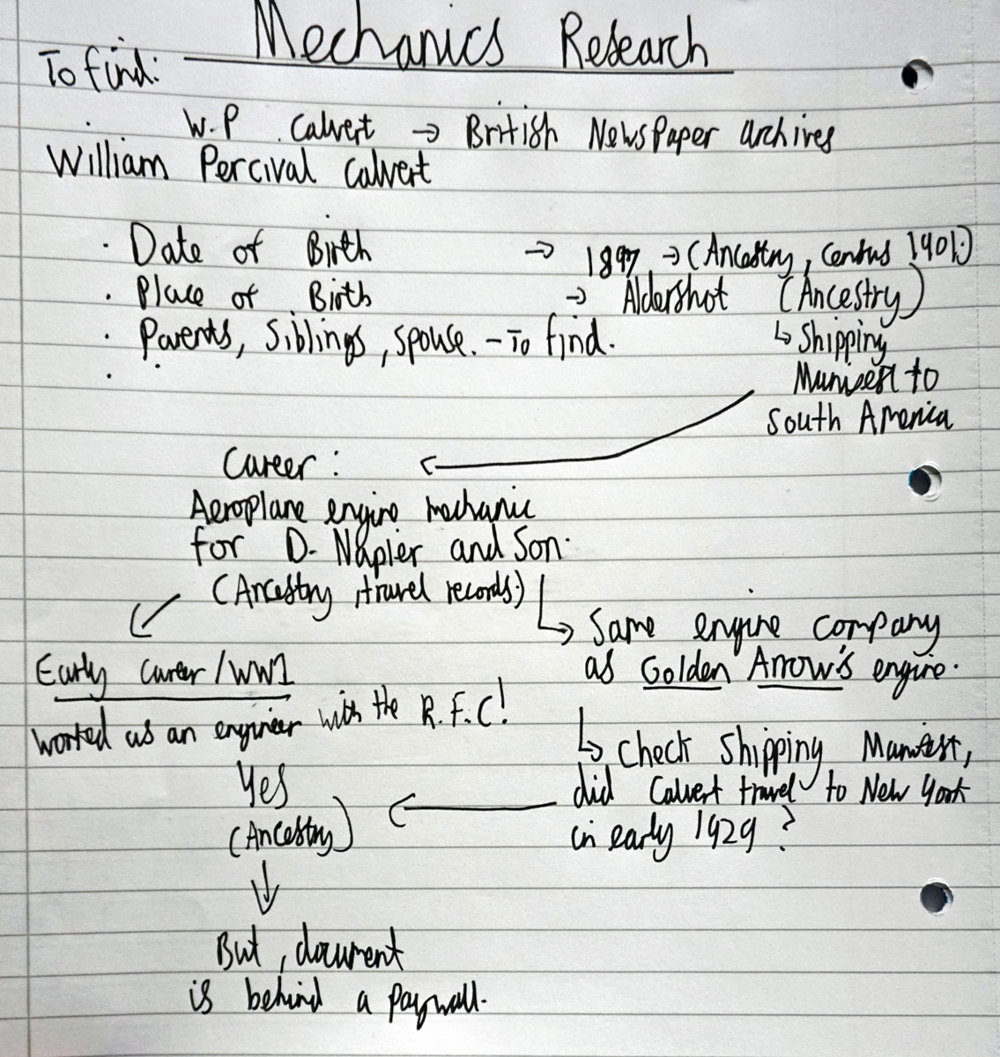 Mechanics Research
To find:
W.P Calvert → British Newspaper Archives
William Percival Calvert
· Date of Birth → 1897 → (Ancestry, Census 1901.)
· Place of Birth → Aldershot (Ancestry)
· Parents, Siblings, Spouse. - To find.
↳ Shipping
Manifest to
South America
Career:
Aeroplane engine mechanic
for D. Napier and Son.
(Ancestry, travel records.)
↳ Same engine company
as Golden Arrow's engine.
Early Career/WW1
Worked as an engineer with the R.F.C!
↳ Check Shipping Manifest,
did Calvert travel to New York
in early 1929?
Yes
(Ancestry)
↓
But, document
is behind a paywall.